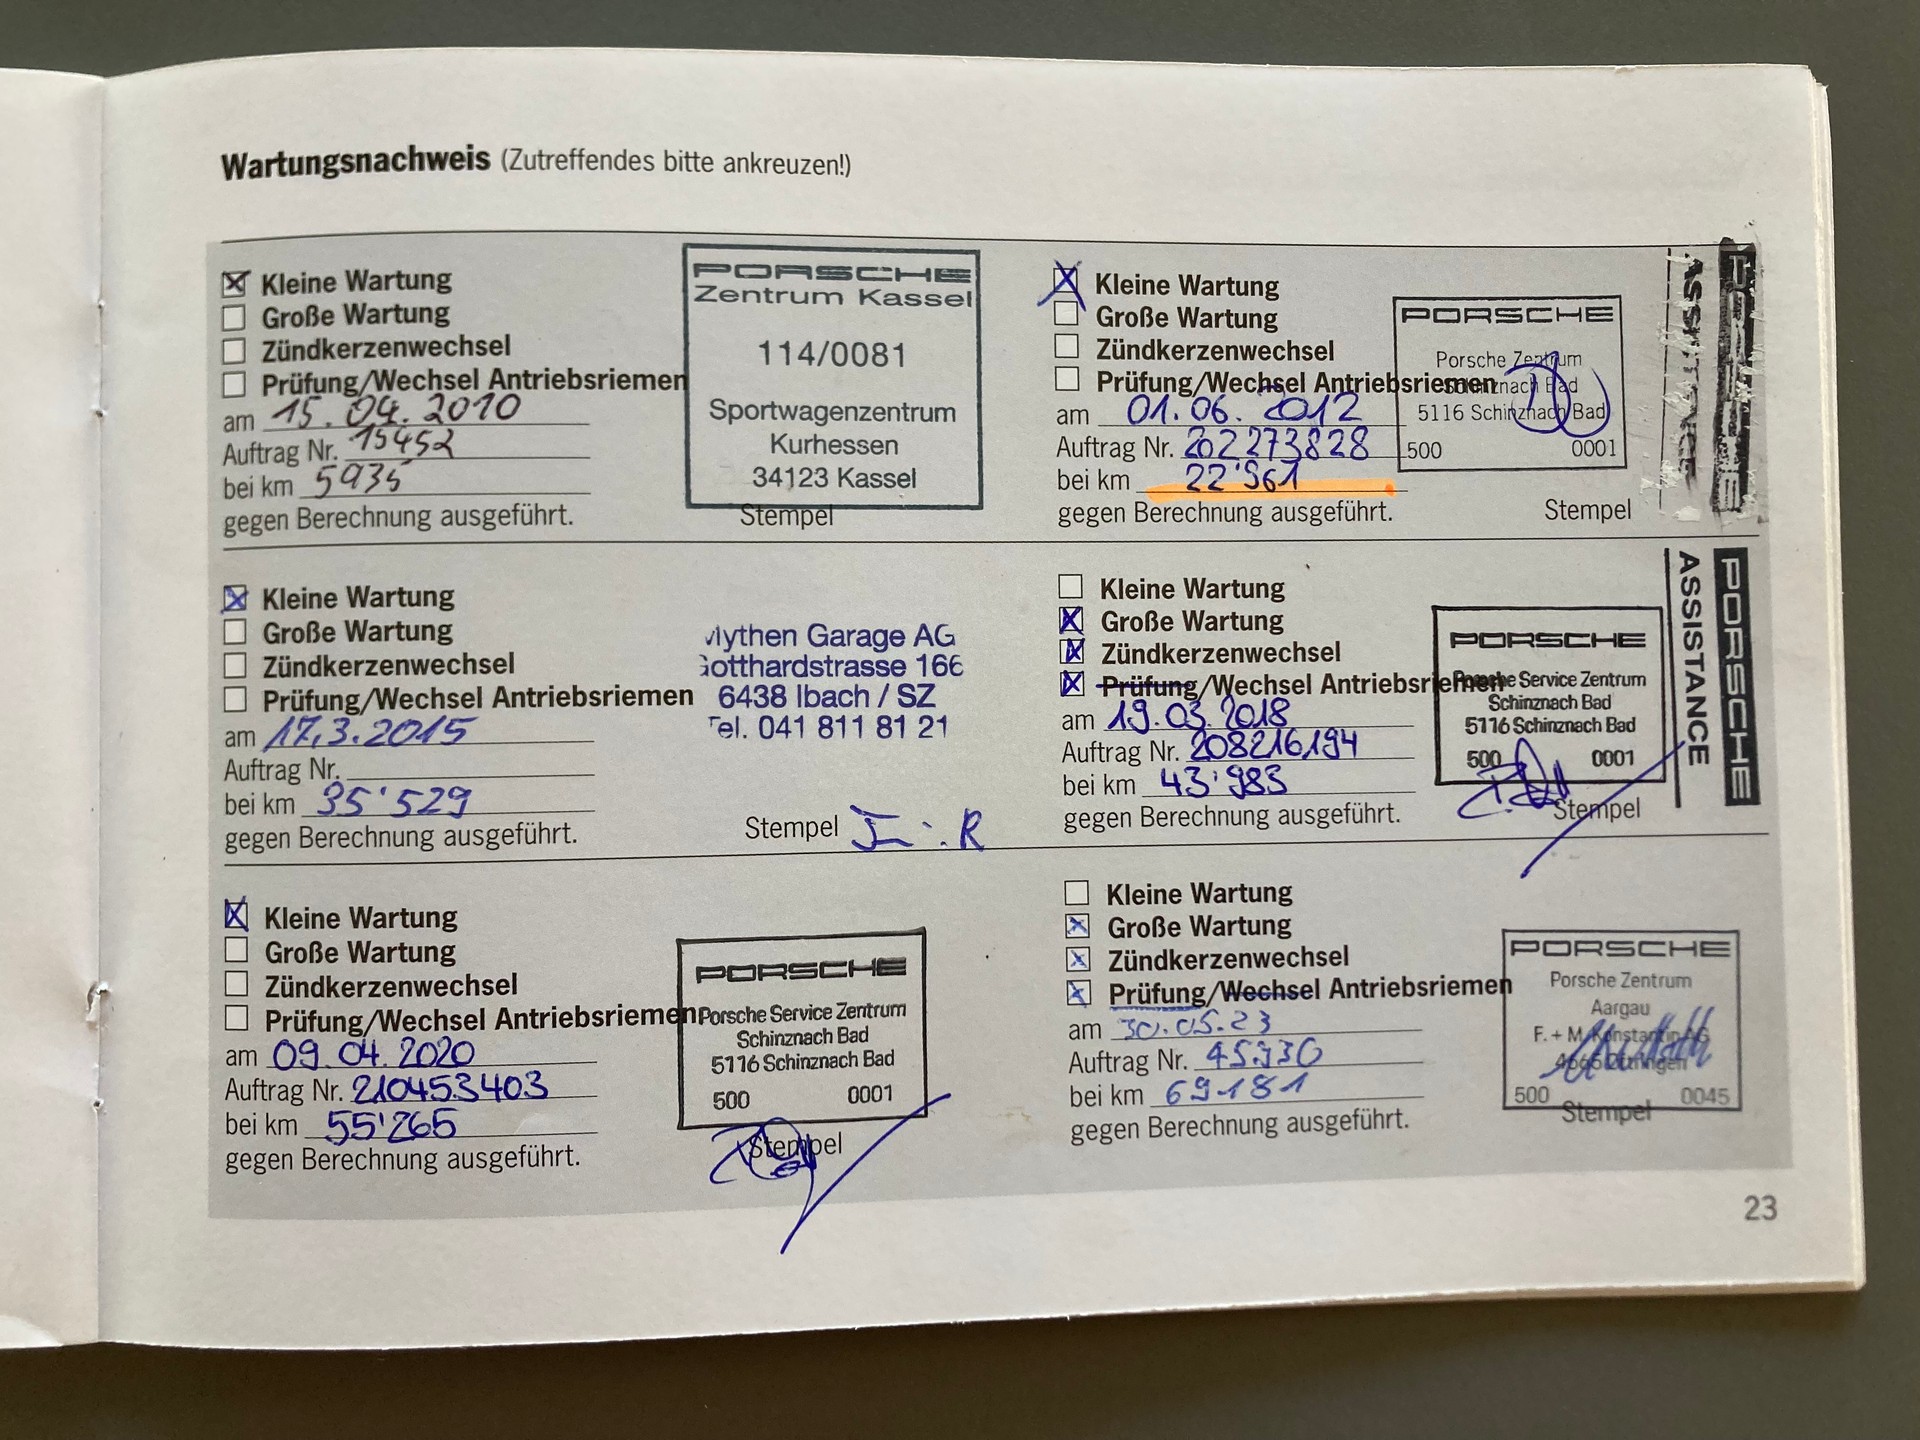 Wartungsnachweis (Zutreffendes bitte ankreuzen!)
Kleine Wartung
Große Wartung
Zündkerzenwechsel
Prüfung/Wechsel Antriebsriemen
am 15.04.2010
Auftrag Nr. 15452
bei km 5935
gegen Berechnung ausgeführt.
PORSCHE
Zentrum Kassel
114/0081
Sportwagenzentrum
Kurhessen
34123 Kassel
Stempel
Kleine Wartung
Große Wartung
Zündkerzenwechsel
Prüfung/Wechsel Antriebsriemen
am 01.06.2012
Auftrag Nr. 202273828
bei km 22'961
gegen Berechnung ausgeführt.
PORSCHE
Porsche Zentrum
Schinznach Bad
5116 Schinznach Bad
500 0001
Stempel
ASSISTANCE
PORSCHE
Kleine Wartung
Große Wartung
Zündkerzenwechsel
Prüfung/Wechsel Antriebsriemen
am 17.3.2015
Auftrag Nr.
bei km 35'529
gegen Berechnung ausgeführt.
Mythen Garage AG
Gotthardstrasse 166
6438 Ibach / SZ
Tel. 041 811 81 21
Stempel
Kleine Wartung
Große Wartung
Zündkerzenwechsel
Prüfung/Wechsel Antriebsriemen
am 19.03.2018
Auftrag Nr. 208216194
bei km 43'983
gegen Berechnung ausgeführt.
PORSCHE
Porsche Service Zentrum
Schinznach Bad
5116 Schinznach Bad
500 0001
Stempel
ASSISTANCE
PORSCHE
Kleine Wartung
Große Wartung
Zündkerzenwechsel
Prüfung/Wechsel Antriebsriemen
am 09.04.2020
Auftrag Nr. 210453403
bei km 55'265
gegen Berechnung ausgeführt.
PORSCHE
Porsche Service Zentrum
Schinznach Bad
5116 Schinznach Bad
500 0001
Stempel
Kleine Wartung
Große Wartung
Zündkerzenwechsel
Prüfung/Wechsel Antriebsriemen
am 30.05.23
Auftrag Nr. 45930
bei km 69181
gegen Berechnung ausgeführt.
PORSCHE
Porsche Zentrum
Aargau
F. + M. Konstantin AG
500 0045
Stempel
23